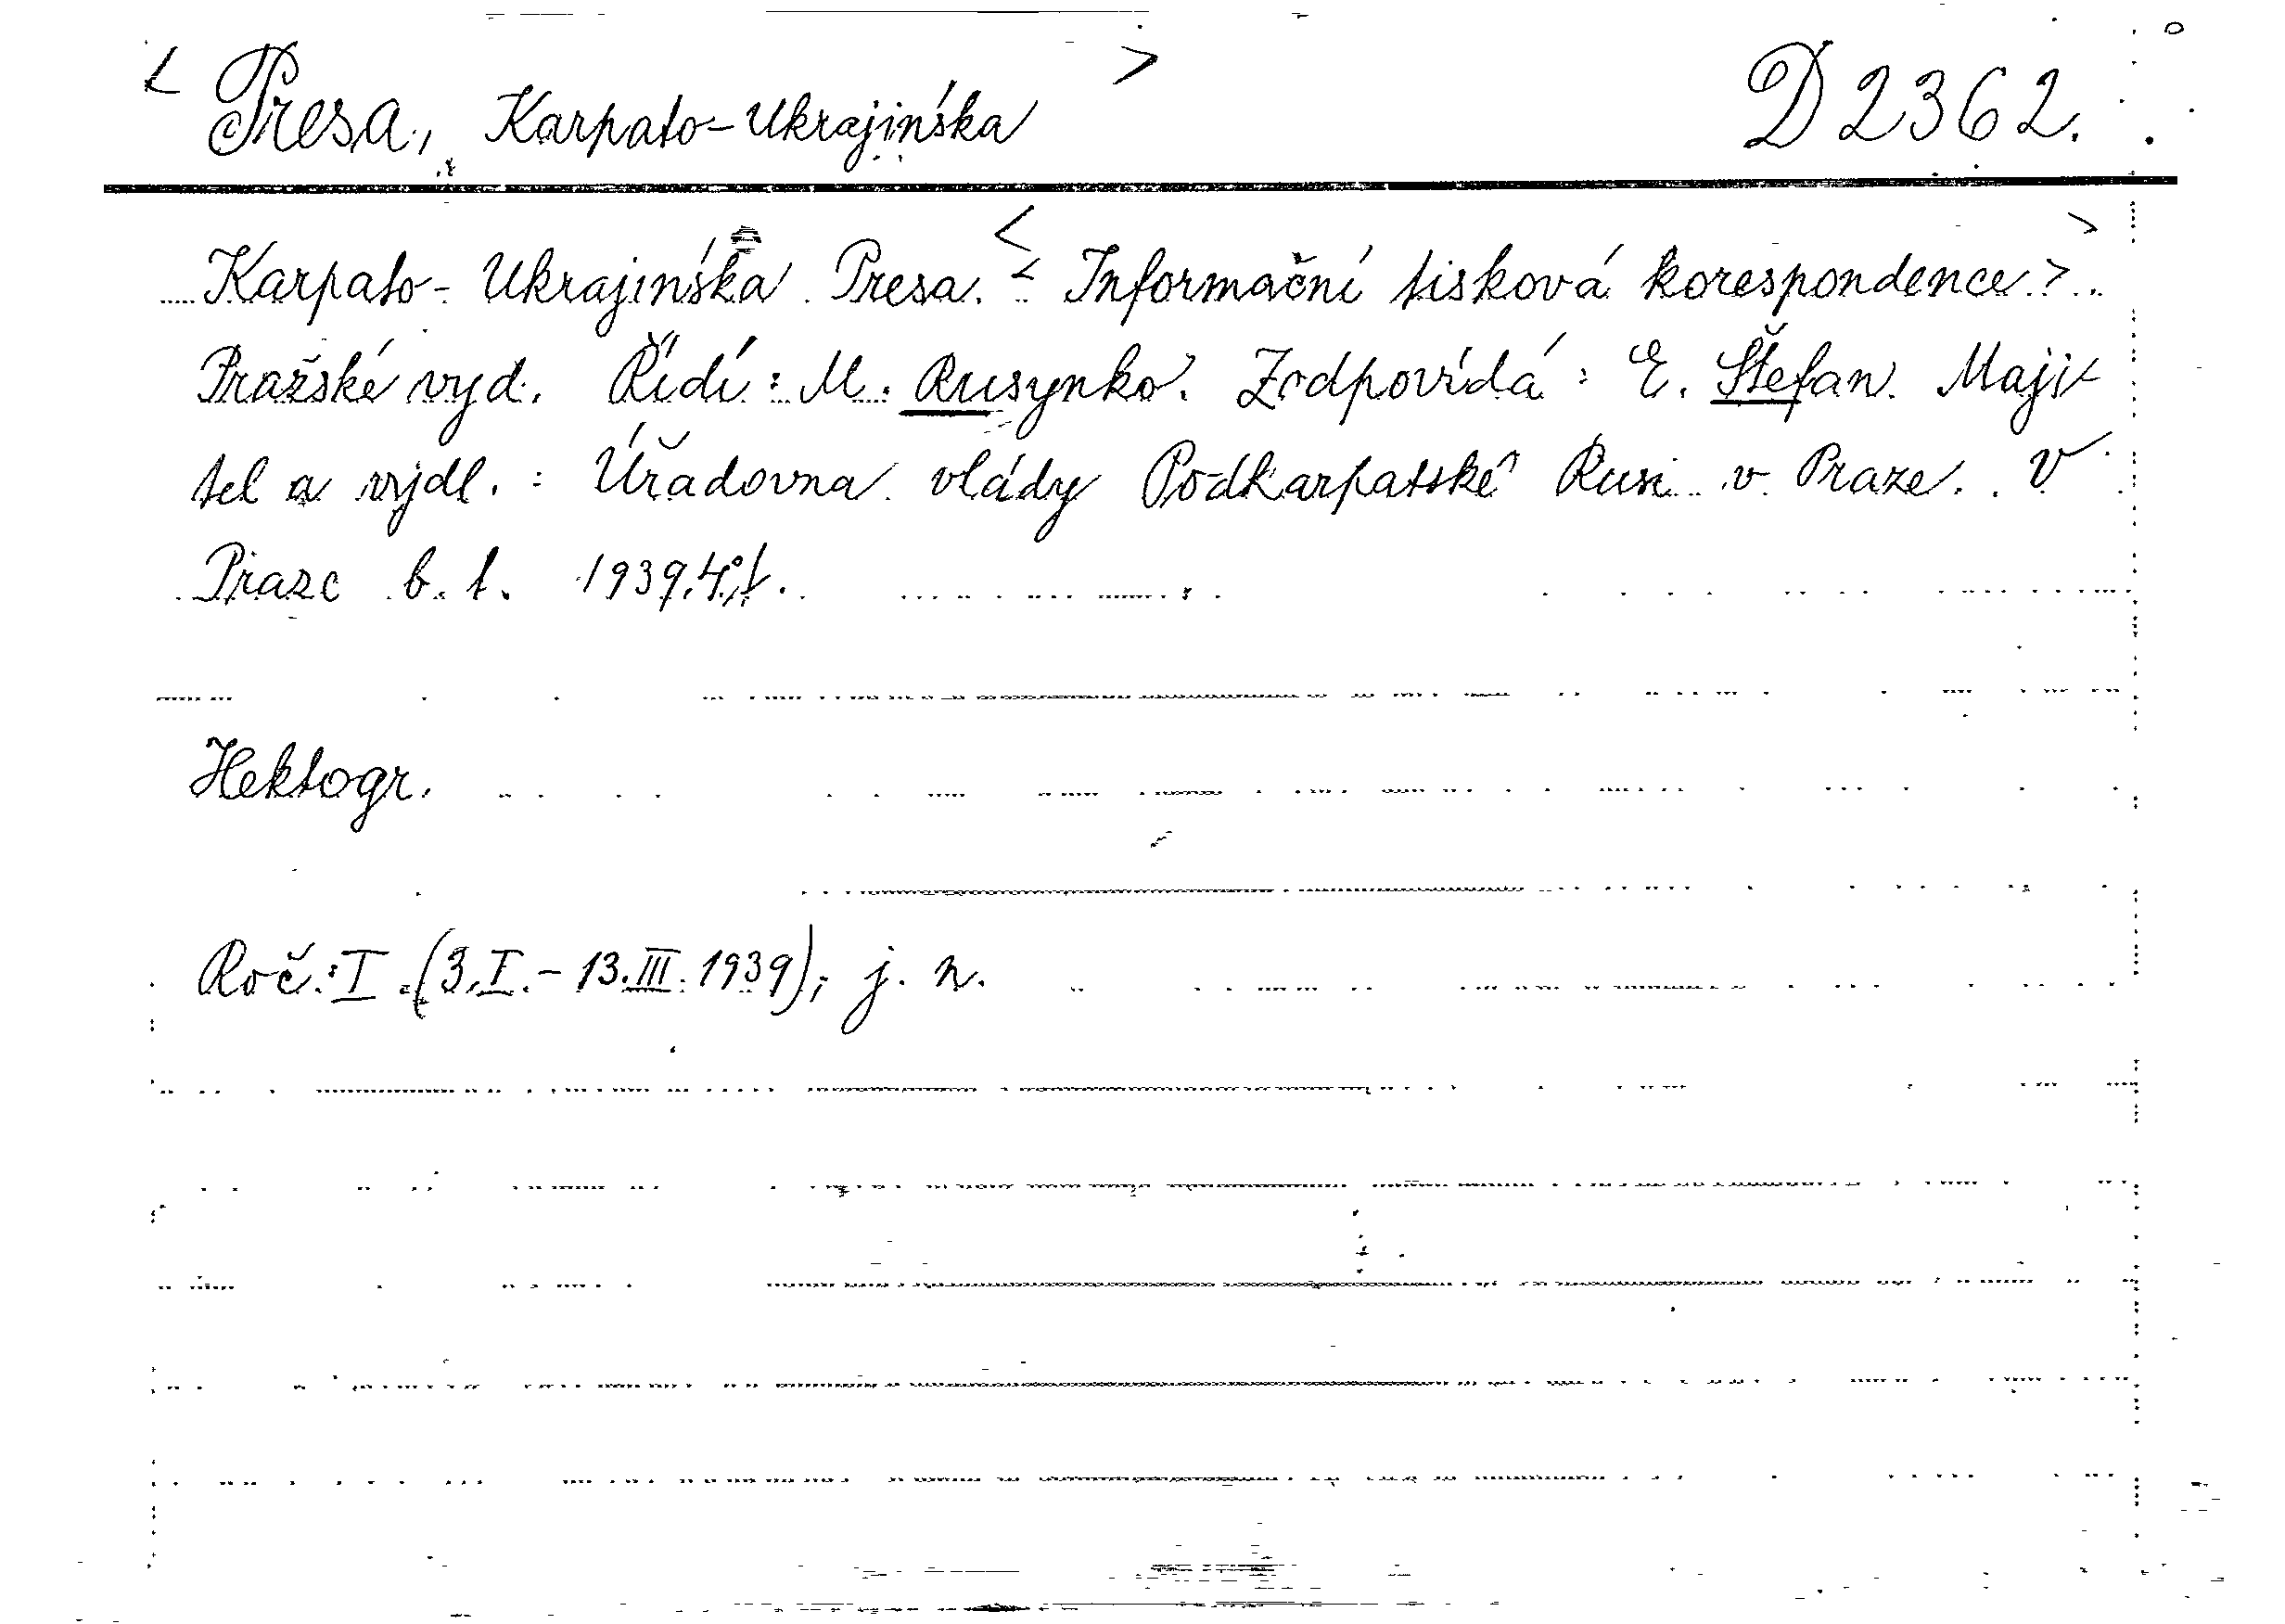 < Presa, Karpato-Ukrajinśka > D 2362.
Karpato-Ukrajinśka Presa. < Informační tisková korespondence. >
Pražské vyd. Řídí: M. Rusynko. Zodpovídá: E. Štefan. Maji-
tel a vydl.: Úřadovna vlády Podkarpatské Rusi v Praze. V
Praze b. t. 1939. 4°.
Hektogr.
Roč. I (3.I.-13.III.1939); j. n.